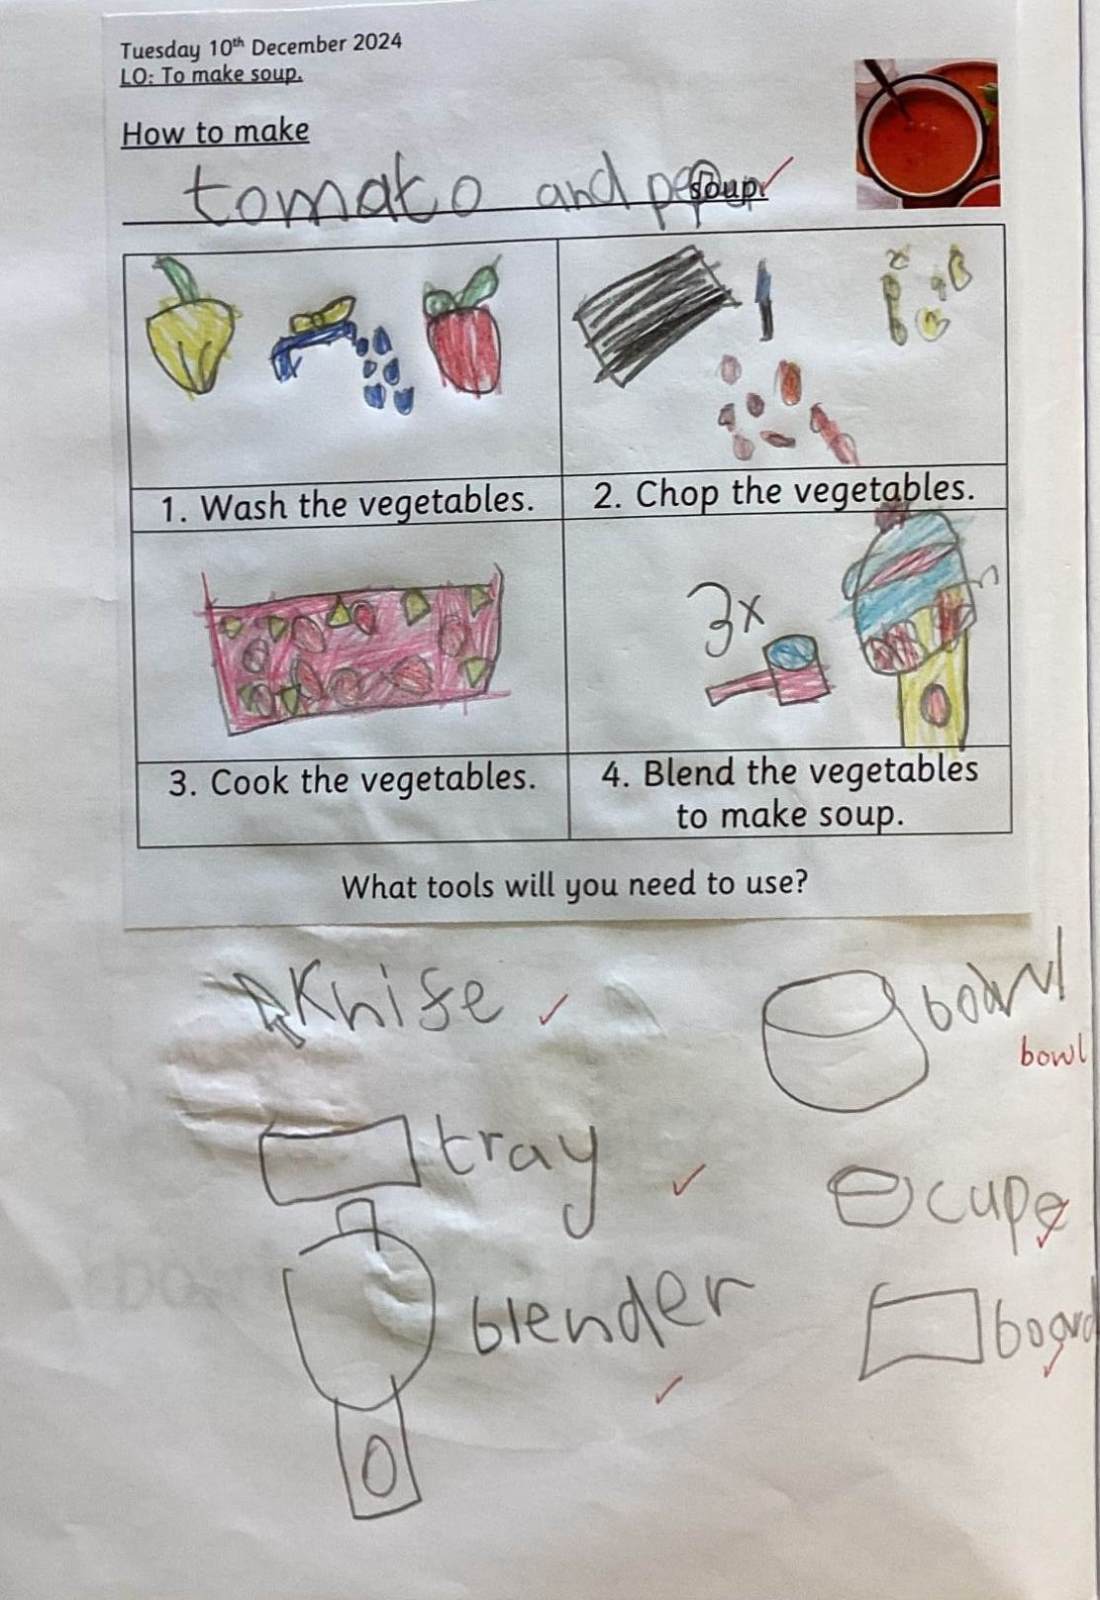 Tuesday 10th December 2024
LO: To make soup.
How to make
tomato and soup.
1. Wash the vegetables.
2. Chop the vegetables.
3x
3. Cook the vegetables.
4. Blend the vegetables
to make soup.
What tools will you need to use?
Knife
bowl
tray
cupe
blender
board